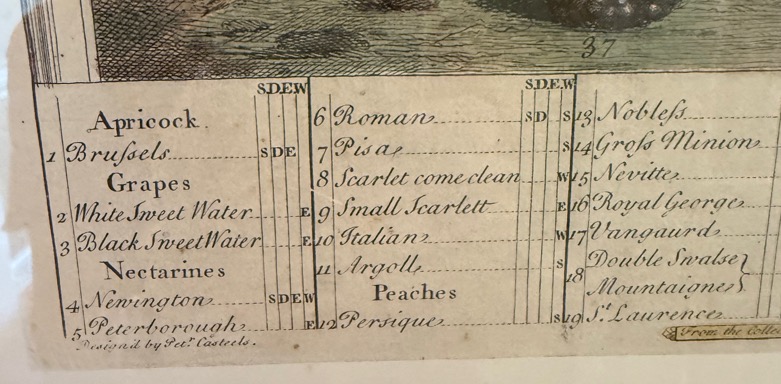 37
S.D.E.W
Apricock.
1 Bruſsels S D E
Grapes
2 White Sweet Water E
3 Black Sweet Water E
Nectarines
4 Newington S D E W
5 Peterborough E
Design'd by Pet.r Casteels.
S.D.E.W
6 Roman S D S
7 Pisa S
8 Scarlet come clean W
9 Small Scarlett E
10 Italian W
11 Argoll S
Peaches
12 Persique S
13 Nobleſs
14 Groſs Minion
15 Nevitte
16 Royal George
17 Vangaurd
18 Double Swalse
Mountaigne
19 S.t Laurence
From the Colle